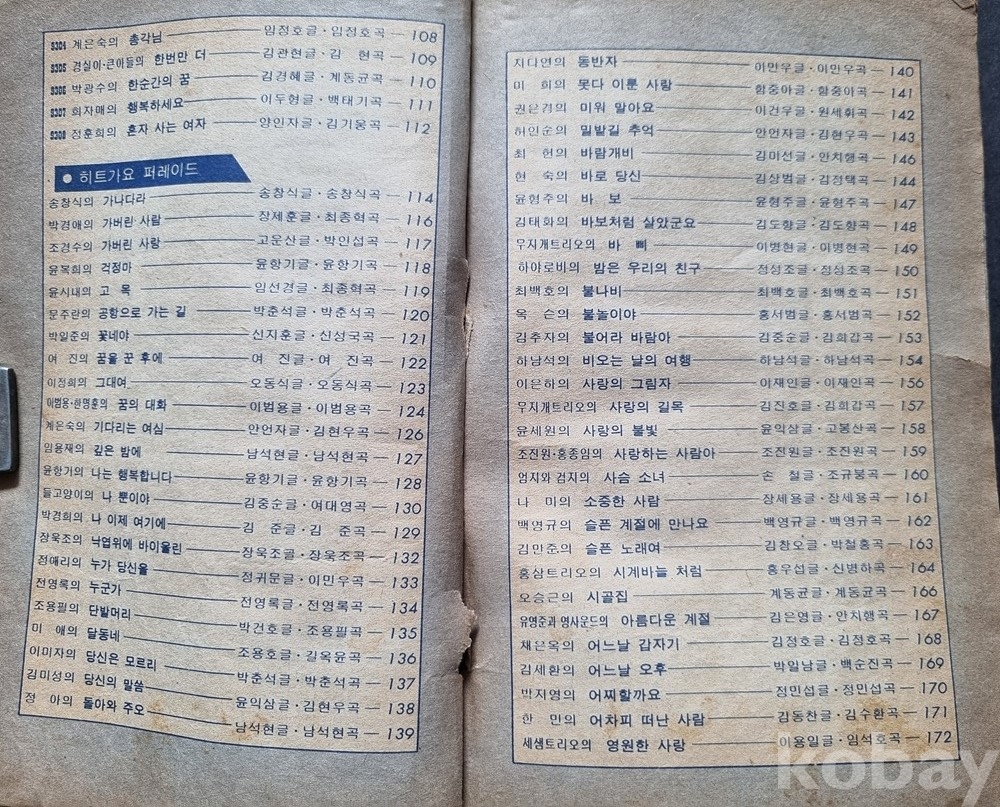 9304 계은숙의 총각님 임정호글·임정호곡 — 108
9305 경실이·큰아들의 한번만 더 김관현글·김 현곡 — 109
9306 박광수의 한순간의 꿈 김경혜글·계동균곡 — 110
9307 희자매의 행복하세요 이두형글·백태기곡 — 111
9308 정훈희의 혼자 사는 여자 양인자글·김기웅곡 — 112
● 히트가요 퍼레이드
송창식의 가나다라 송창식글·송창식곡 — 114
박경애의 가버린 사람 장제훈글·최종혁곡 — 116
조경수의 가버린 사랑 고운산글·박인섭곡 — 117
윤복희의 걱정마 윤항기글·윤항기곡 — 118
윤시내의 고 목 임선경글·최종혁곡 — 119
문주란의 공항으로 가는 길 박춘석글·박춘석곡 — 120
박일준의 꽃네야 신지훈글·신성국곡 — 121
여 진의 꿈을 꾼 후에 여 진글·여 진곡 — 122
이정희의 그대여 오동식글·오동식곡 — 123
이범용·한명훈의 꿈의 대화 이범용글·이범용곡 — 124
계은숙의 기다리는 여심 안언자글·김현우곡 — 126
임용재의 깊은 밤에 남석현글·남석현곡 — 127
윤항기의 나는 행복합니다 윤항기글·윤항기곡 — 128
들고양이의 나 뿐이야 김중순글·여대영곡 — 130
박경희의 나 이제 여기에 김 준글·김 준곡 — 129
장욱조의 낙엽위에 바이올린 장욱조글·장욱조곡 — 132
정애리의 누가 당신을 정귀문글·이민우곡 — 133
전영록의 누군가 전영록글·전영록곡 — 134
조용필의 단발머리 박건호글·조용필곡 — 135
미 애의 달동네 조용호글·길옥윤곡 — 136
이미자의 당신은 모르리 박춘석글·박춘석곡 — 137
김미성의 당신의 말씀 윤익삼글·김현우곡 — 138
정 아의 돌아와 주오 남석현글·남석현곡 — 139
지다연의 동반자 이만우글·이만우곡 — 140
미 희의 못다 이룬 사랑 함중아글·함중아곡 — 141
권은경의 미워 말아요 이건우글·원세휘곡 — 142
허인순의 밀밭길 추억 안언자글·김현우곡 — 143
최 현의 바람개비 김미선글·안치행곡 — 146
현 숙의 바로 당신 김상범글·김정택곡 — 144
윤형주의 바 보 윤형주글·윤형주곡 — 147
김태화의 바보처럼 살았군요 김도향글·김도향곡 — 148
무지개트리오의 바 삐 이병현글·이병현곡 — 149
하아로비의 밤은 우리의 친구 정성조글·정성조곡 — 150
최백호의 불나비 최백호글·최백호곡 — 151
옥 슨의 불놀이야 홍서범글·홍서범곡 — 152
김추자의 불어라 바람아 김중순글·김희갑곡 — 153
하남석의 비오는 날의 여행 하남석글·하남석곡 — 154
이은하의 사랑의 그림자 이재인글·이재인곡 — 156
무지개트리오의 사랑의 길목 김진호글·김희갑곡 — 157
윤세원의 사랑의 불빛 윤익삼글·고봉산곡 — 158
조진원·홍종임의 사랑하는 사람아 조진원글·조진원곡 — 159
엄지와 검지의 사슴 소녀 손 철글·조규붕곡 — 160
나 미의 소중한 사람 장세용글·장세용곡 — 161
백영규의 슬픈 계절에 만나요 백영규글·백영규곡 — 162
김민준의 슬픈 노래여 김창오글·박철홍곡 — 163
홍삼트리오의 시계바늘 처럼 홍우섭글·신병하곡 — 164
오승근의 시골집 계동균글·계동균곡 — 166
유영준과 영사운드의 아름다운 계절 김은영글·안치행곡 — 167
채은옥의 어느날 갑자기 김정호글·김정호곡 — 168
김세환의 어느날 오후 박일남글·백순진곡 — 169
박지영의 어찌할까요 정민섭글·정민섭곡 — 170
한 민의 어차피 떠난 사람 김동찬글·김수환곡 — 171
세샘트리오의 영원한 사랑 이용일글·임석호곡 — 172
kobay